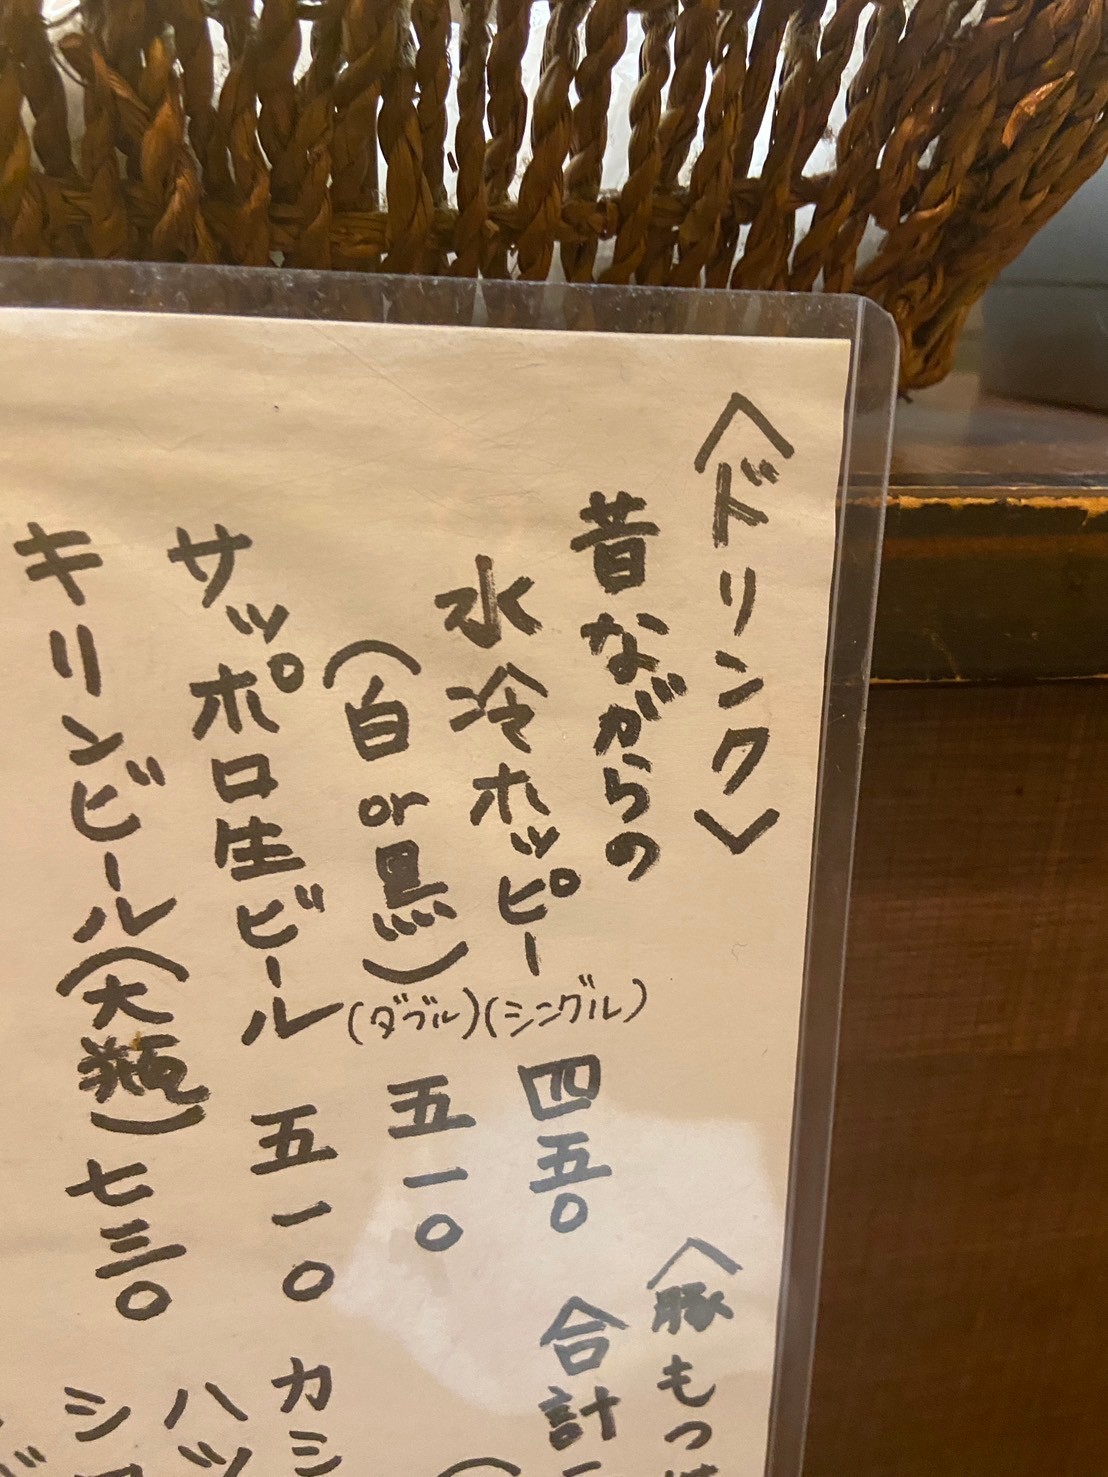 〈ドリンク〉
昔ながらの
水冷ホッピー(シングル) 四五〇
(白or黒)(ダブル) 五一〇
サッポロ生ビール 五一〇
キリンビール(大瓶) 七三〇
〈豚もつ
合計
カシ
ハッ